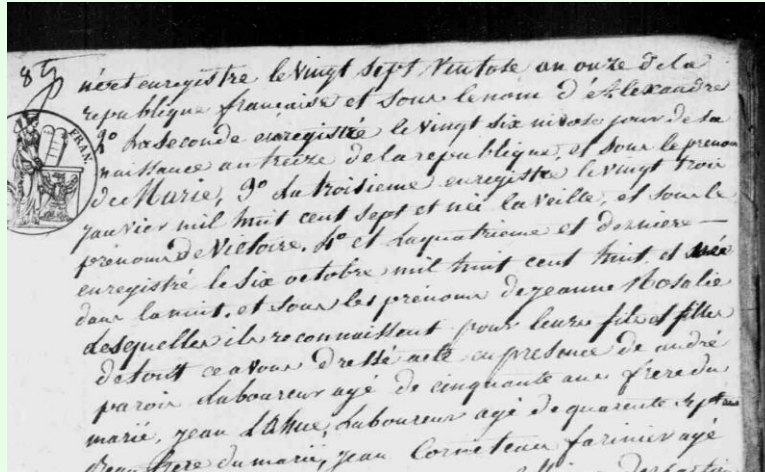 né et enregistré le vingt sept Ventose an onze de la
republique française et sous le nom d'Alexandre
2° La seconde enregistré le vingt six nivose jour de sa
naissance an treize de la republique, et sous le prenom
de Marie, 3° La troisieme enregistré le vingt trois
janvier mil huit cent sept et née la veille, et sous le
prénom de Victoire. 4° et La quatrieme et derniere
enregistré le six octobre mil huit cent huit et née
dans la nuit, et sous les prénoms de jeanne Rosalie
Lesquelles ils reconnaissent pour leurs fils et filles
de tout ce avons dressé acte en presence de andré
parois Laboureur agé de cinquante ans frere du
marié, jean Laboureur agé de quarente sept ans
Beau frere du marié, jean Corneteau farinier agé
FRAN.